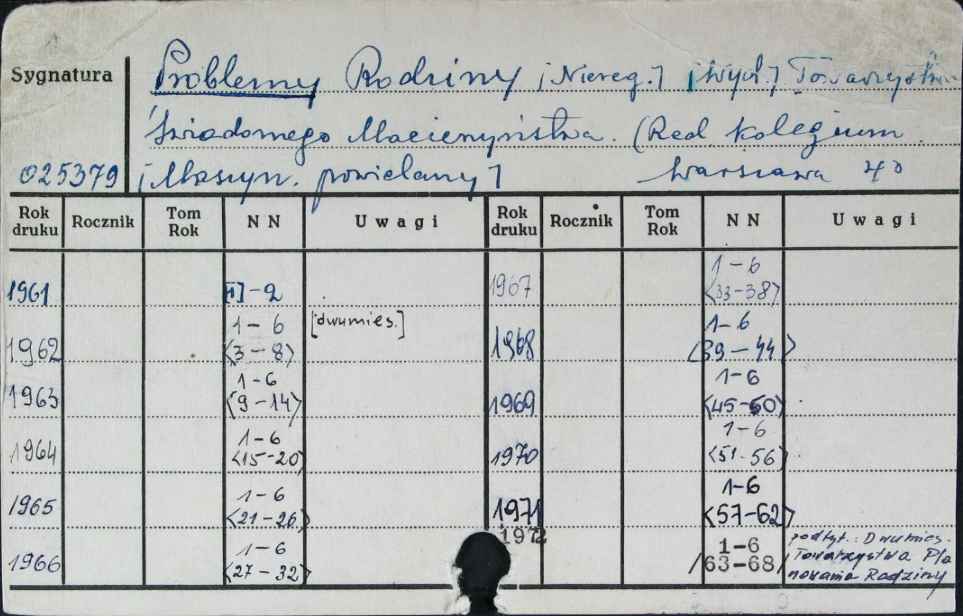 Sygnatura
Problemy Rodziny [Niereg.] [Wyd.] Towarzystwo
Świadomego Macierzyństwa. (Red. Kolegium.
025379 [Maszyn. powielany] Warszawa 4°
Rok druku Rocznik Tom Rok N N Uwagi Rok druku Rocznik Tom Rok N N Uwagi
1961 [1]-2 1967 1-6 <33-38>
1962 1-6 <3-8> [dwumies.] 1968 1-6 <39-44>
1963 1-6 <9-14> 1969 1-6 <45-50>
1964 1-6 <15-20> 1970 1-6 <51-56>
1965 1-6 <21-26> 1971 1-6 <57-62>
1966 1-6 <27-32> 1972 1-6 /63-68/ podtyt.: Dwumies.
Towarzystwa Pla
nowania Rodziny